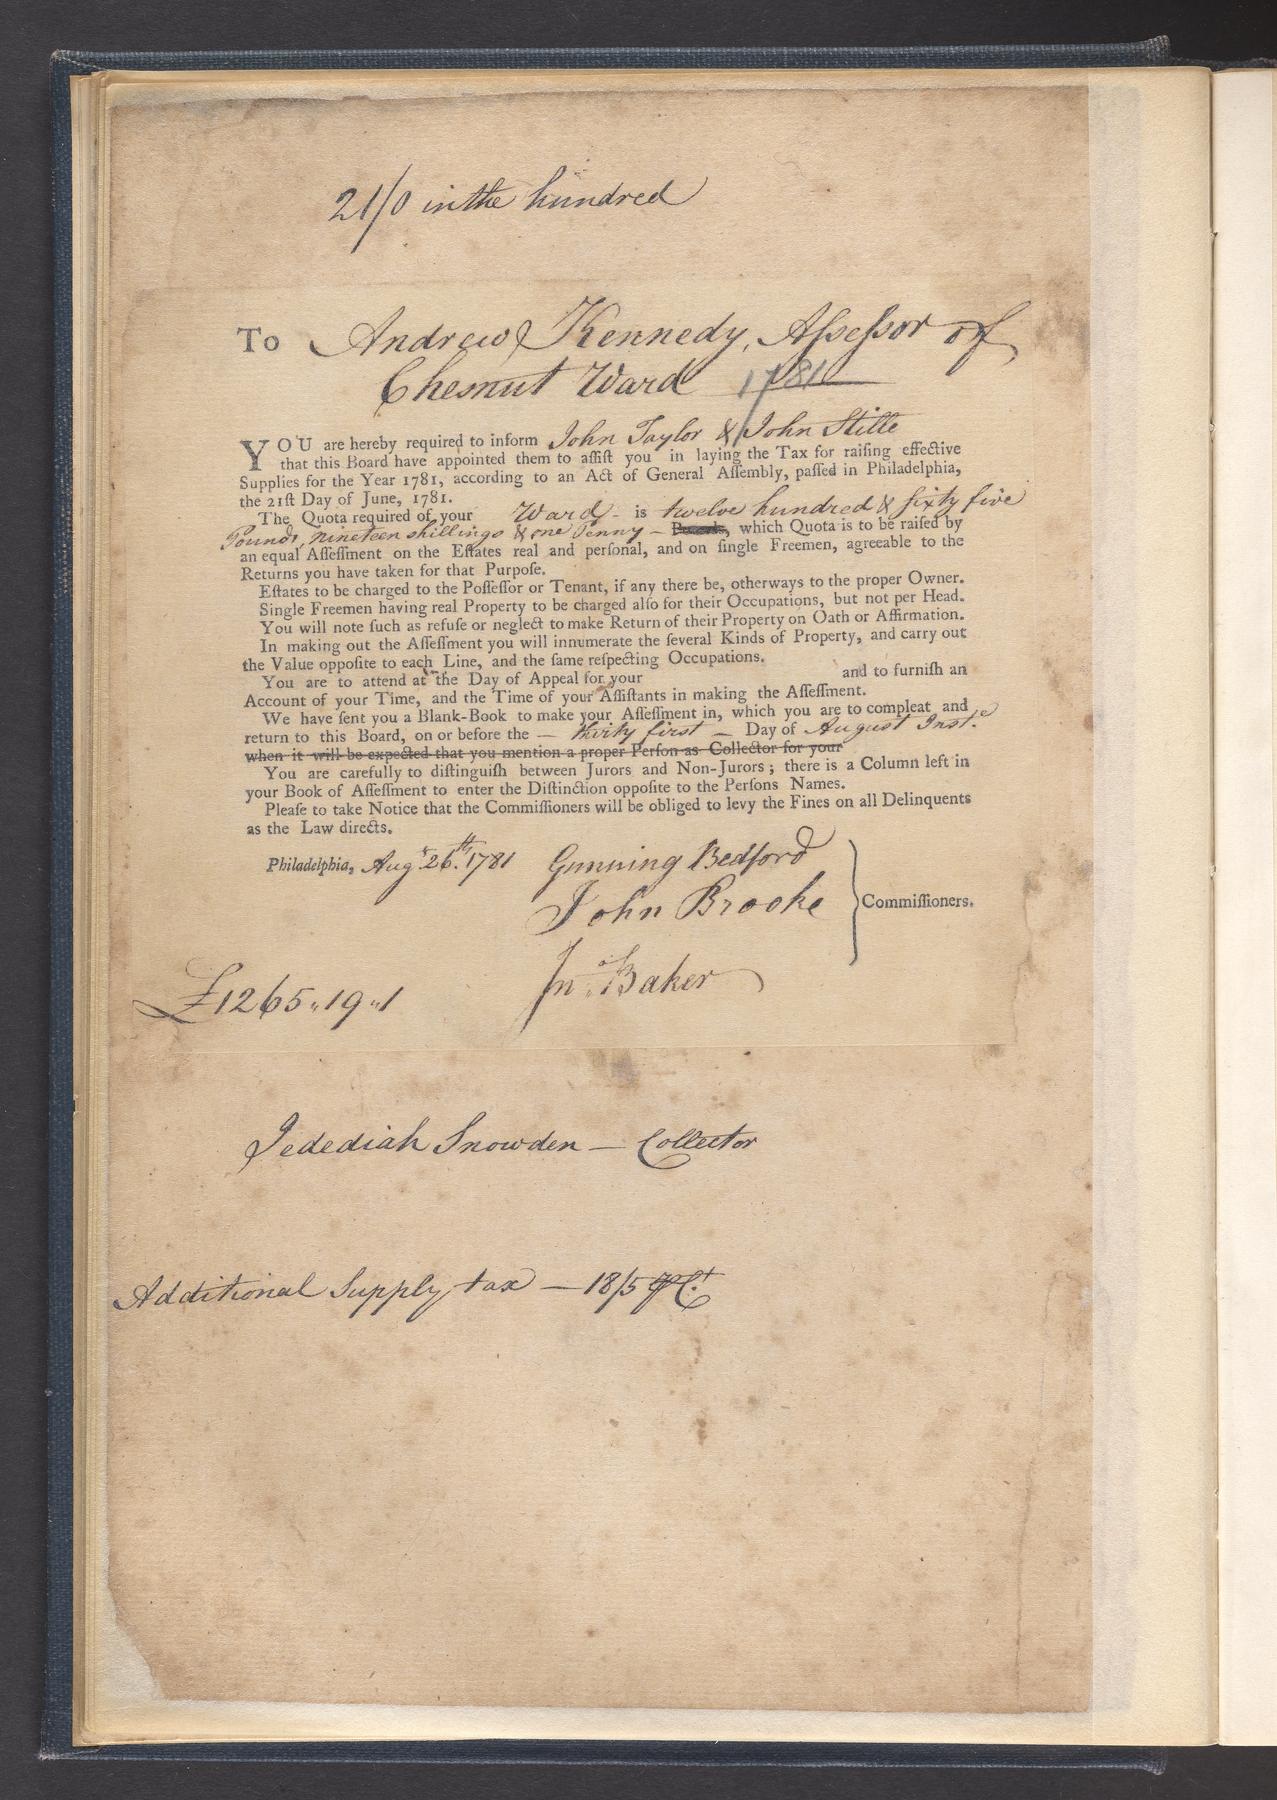 21/0 in the hundred
To Andrew Kennedy, Aſseſsor of
Chesnut Ward 1781
YOU are hereby required to inform John Taylor & John Stille
that this Board have appointed them to aſſiſt you in laying the Tax for raiſing effective
Supplies for the Year 1781, according to an Act of General Aſſembly, paſſed in Philadelphia,
the 21ſt Day of June, 1781.
The Quota required of your Ward - is twelve hundred & ſixty five
Pounds, nineteen shillings & one Penny — , which Quota is to be raiſed by
an equal Aſſeſſment on the Eſtates real and perſonal, and on ſingle Freemen, agreeable to the
Returns you have taken for that Purpoſe.
Eſtates to be charged to the Poſſeſſor or Tenant, if any there be, otherways to the proper Owner.
Single Freemen having real Property to be charged alſo for their Occupations, but not per Head.
You will note ſuch as refuſe or neglect to make Return of their Property on Oath or Affirmation.
In making out the Aſſeſſment you will innumerate the ſeveral Kinds of Property, and carry out
the Value oppoſite to each Line, and the ſame reſpecting Occupations.
You are to attend at the Day of Appeal for your and to furniſh an
Account of your Time, and the Time of your Aſſiſtants in making the Aſſeſſment.
We have ſent you a Blank-Book to make your Aſſeſſment in, which you are to compleat and
return to this Board, on or before the — thirty first — Day of August Inst.
when it will be expected that you mention a proper Perſon as Collector for your
You are carefully to diſtinguiſh between Jurors and Non-Jurors; there is a Column left in
your Book of Aſſeſſment to enter the Diſtinction oppoſite to the Perſons Names.
Pleaſe to take Notice that the Commiſſioners will be obliged to levy the Fines on all Delinquents
as the Law directs.
Philadelphia, Augt. 26th. 1781 Gunning Bedford
John Brooke
Commiſſioners.
Jno. Baker
£1265,,19,,1
Jedediah Snowden — Collector
Additional Supply tax — 18/5 ⅌ Ct.